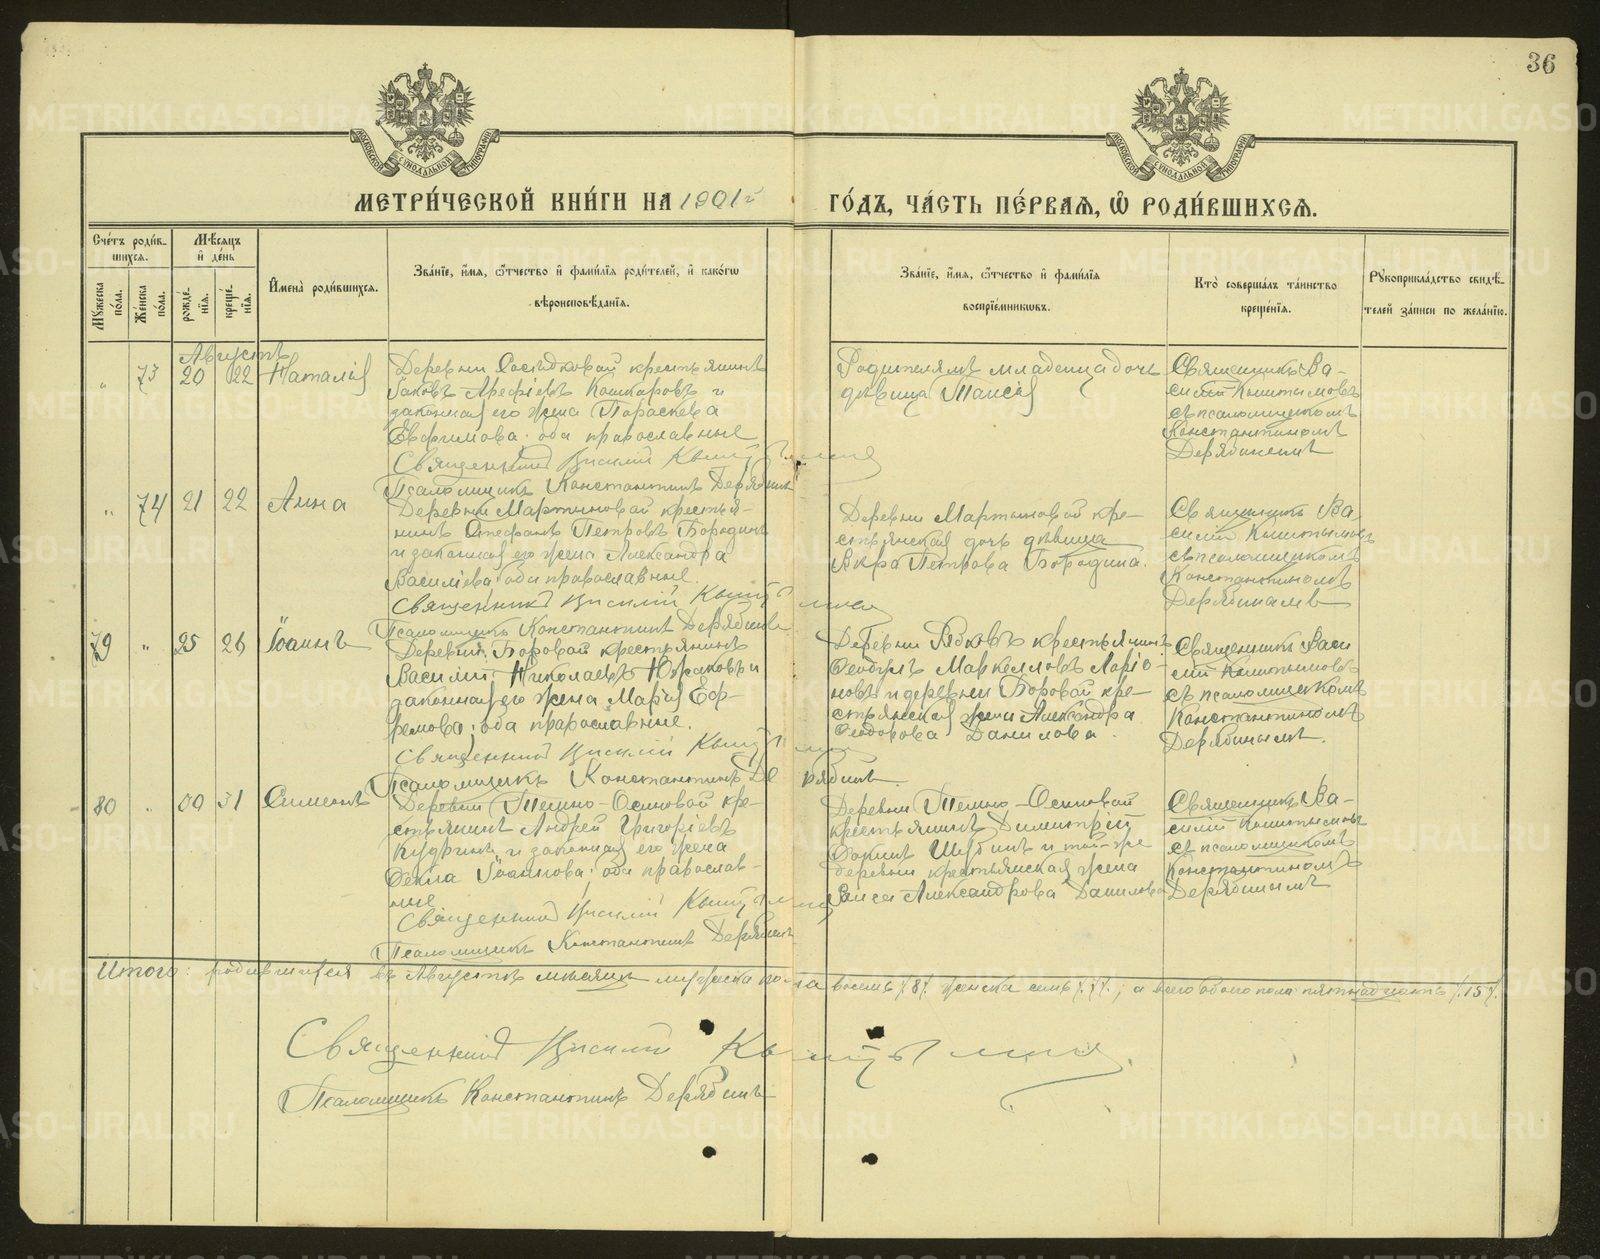 36
МОСКОВСКОЙ СУНОДАЛЬНОЙ ТИПОГРАФІИ
МОСКОВСКОЙ СУНОДАЛЬНОЙ ТИПОГРАФІИ
МЕТРИ́ЧЕСКОЙ КНИ́ГИ НА 1901й ГО́ДЪ, ЧА́СТЬ ПЕ́РВАѦ, Ѡ҆ РОДИ́ВШИХСѦ.
Сче́тъ роди́в-
шихсѧ.
Мꙋжеска по́ла.
Же́нска по́ла.
Мѣ́сѧцъ
и҆ де́нь
рожде́-
нїѧ.
креще́-
нїѧ.
И҆мена̀ роди́вшихсѧ.
Зва́нїе, и҆́мѧ, ѻ҆́тчество и҆ фами́лїѧ роди́телей, и҆ како́гѡ
вѣроисповѣ́данїѧ.
Зва́нїе, и҆́мѧ, ѻ҆́тчество и҆ фами́лїѧ
воспрїе́мниковъ.
Кто̀ соверша́лъ та́инство
креще́нїѧ.
Рꙋкоприкла́дство свидѣ́-
телей за́писи по жела́нїю.
Августъ
" 73 20 22 Наталія
Деревни крестьянинъ
Іаковъ Арефіевъ Кошкаровъ и
законная его жена Параскева
Евфимова; оба православные
Священникъ Василій
Псаломщикъ Константинъ Дерябинъ
Родителямъ младенца дочь
дѣвица Таисія
Священникъ Ва-
силій
съ псаломщикомъ
Константиномъ
Дерябинымъ
" 74 21 22 Анна
Деревни Мартыновой крестья-
нинъ Стефанъ Петровъ Бородинъ
и законная его жена Александра
Василіева; оба православные.
Священникъ Василій
Псаломщикъ Константинъ Дерябинъ
Деревни Мартыновой кре-
стьянская дочь дѣвица
Вѣра Петрова Бородина.
Священникъ Ва
силій
съ псаломщикомъ
Константиномъ
Дерябинымъ
79 " 25 26 Іоаннъ
Деревни Боровой крестьянинъ
Василій Николаевъ и
законная его жена Марія Еф-
ремова; оба православные.
Священникъ Василій
Псаломщикъ Константинъ Дерябинъ
Деревни крестьянинъ
Ѳеодулъ Маркелловъ Ларіо-
новъ и деревни Боровой кре-
стьянская жена Александра
Ѳеодорова Данилова.
Священникъ Васи
лій
съ псаломщикомъ
Константиномъ
Дерябинымъ.
80 " 30 31 Симеонъ
Деревни Темно-Осиновой кре-
стьянинъ Андрей Григоріевъ
и законная его жена
Ѳекла Іоаннова; оба православ-
ные
Священникъ Василій
Псаломщикъ Константинъ Дерябинъ
Деревни Темно-Осиновой
крестьянинъ Димитрій
и той-же
деревни крестьянская жена
Раиса Александрова Данилова
Священникъ Ва-
силій
съ псаломщикомъ
Константиномъ
Дерябинымъ
Итого: родившихся въ Августѣ мѣсяцѣ мужеска пола восемь /.8/. женска семь /.7/.; а всего обоего пола пятнадцать /.15/.
Священникъ Василій
Псаломщикъ Константинъ Дерябинъ
METRIKI.GASO-URAL.RU